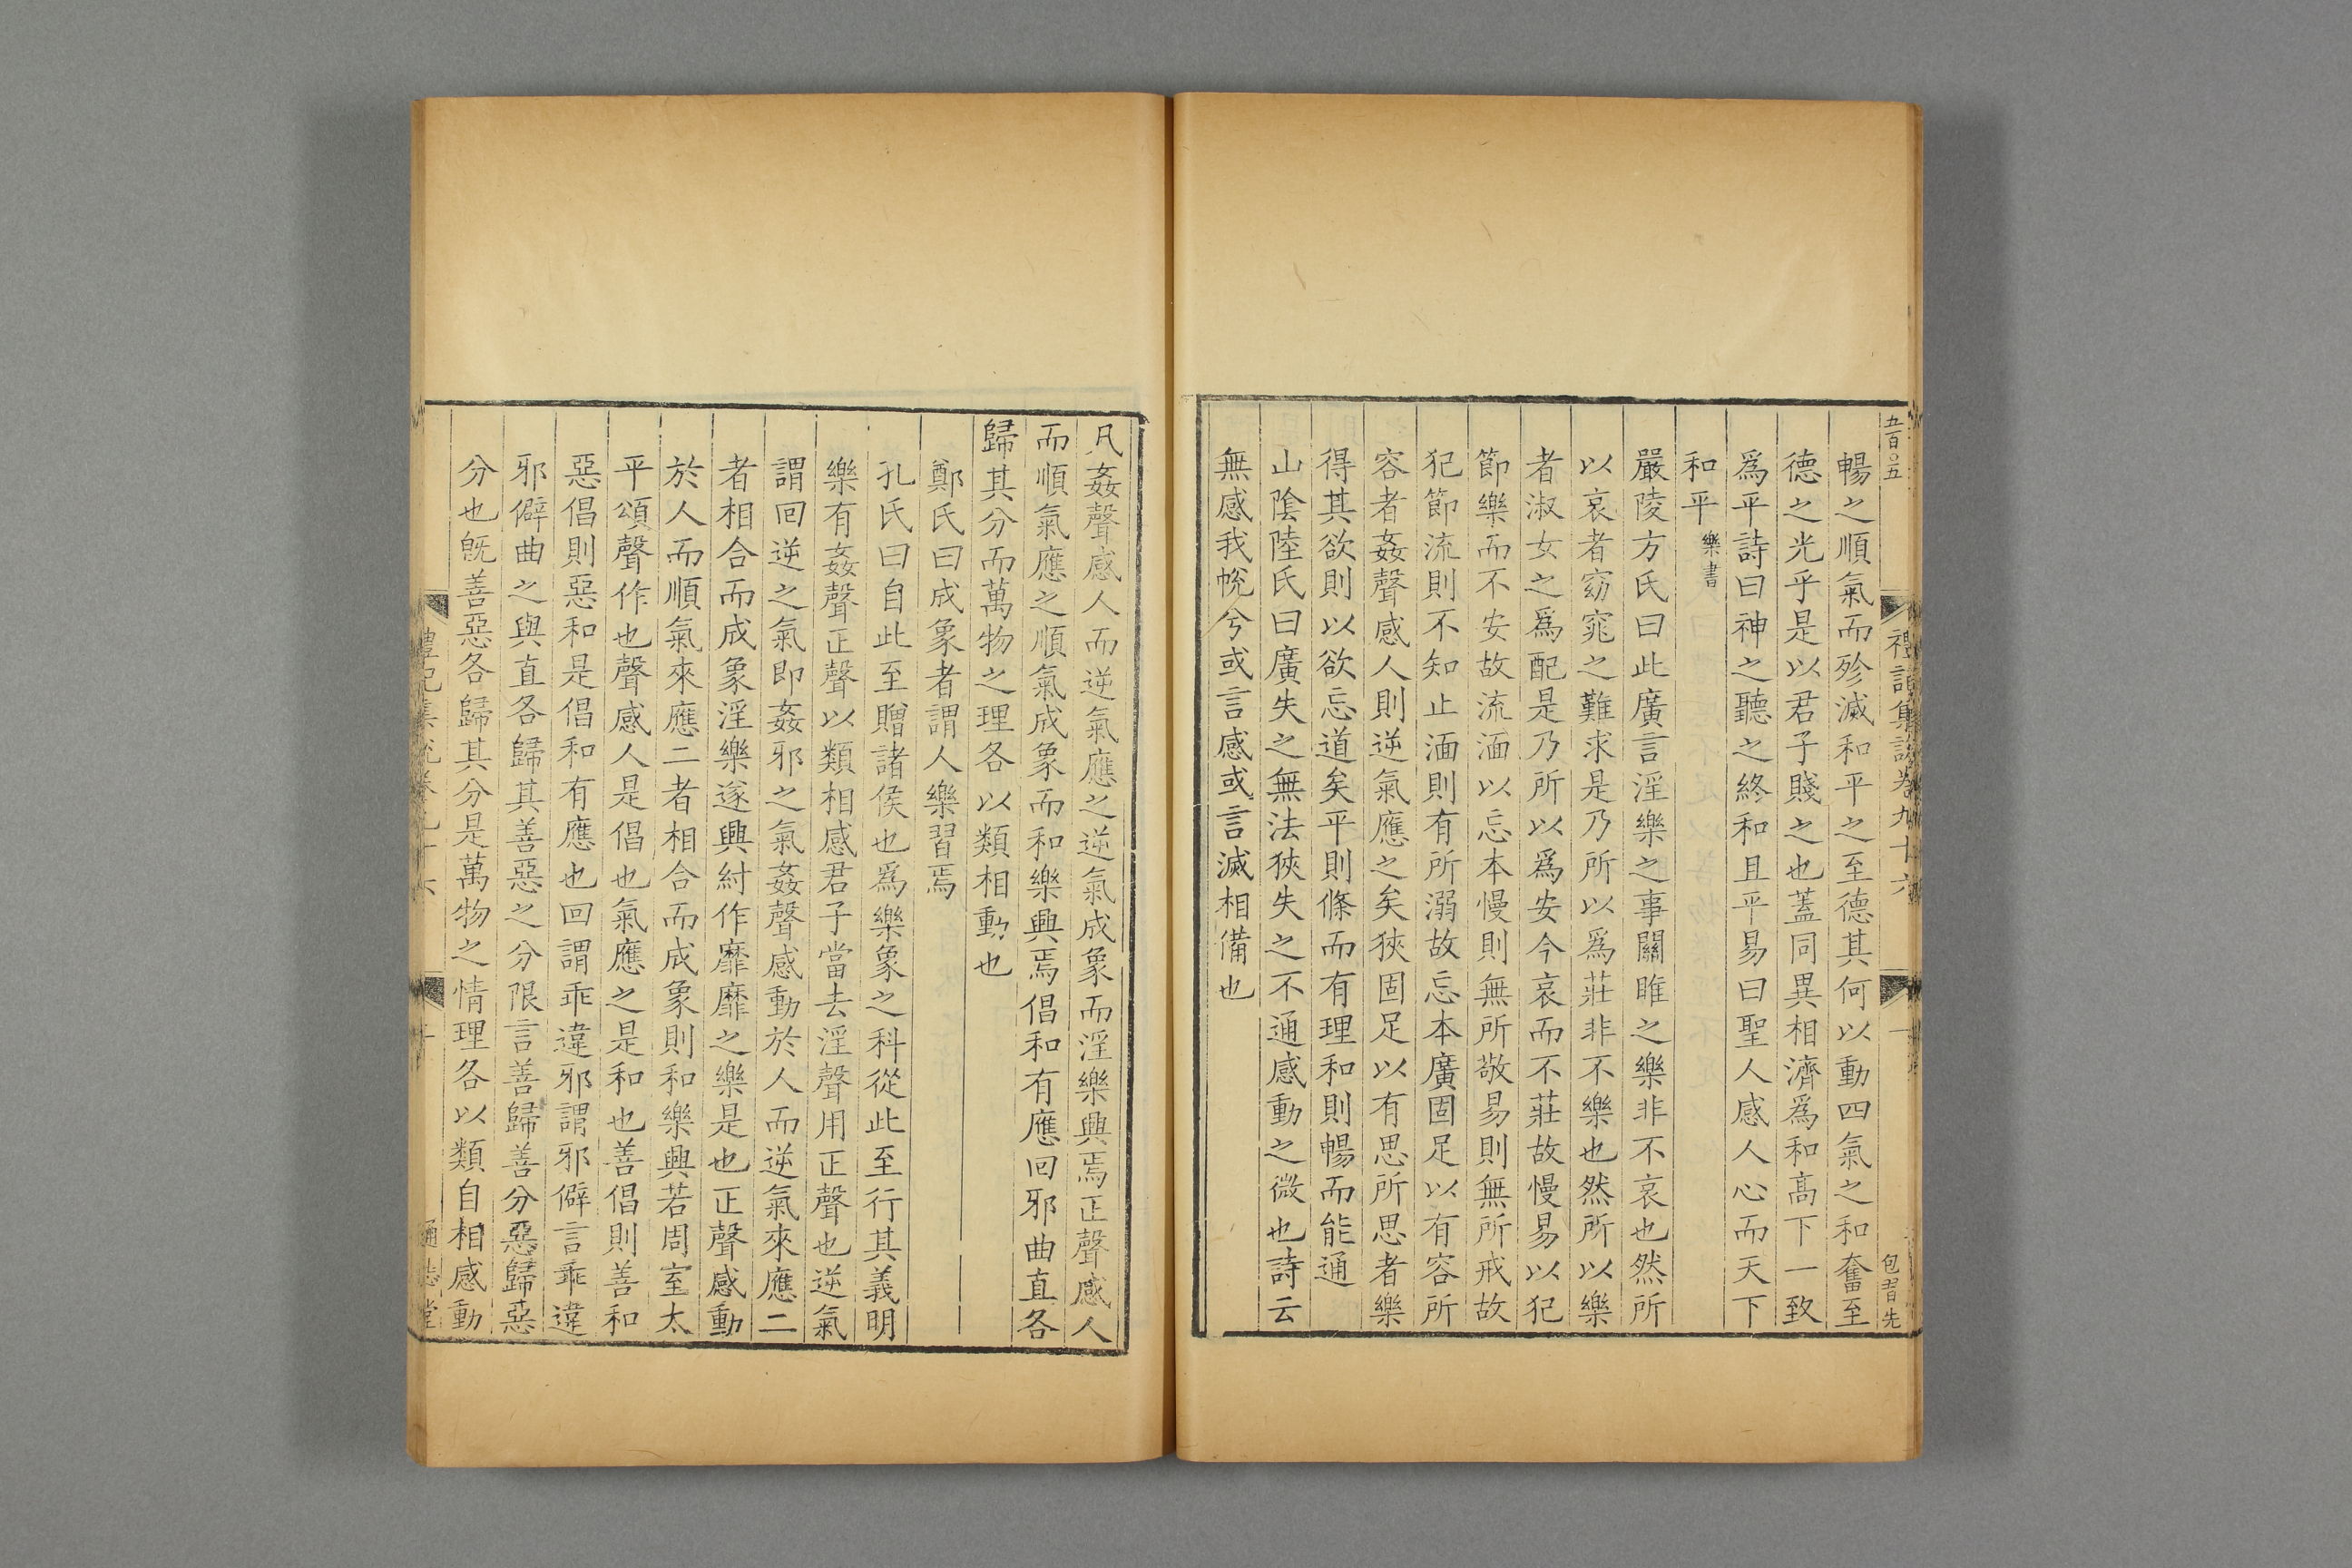 五百○五
禮記集說卷九十六
包習先
暢之順氣而殄滅和平之至德其何以動四氣之和奮至
德之光乎是以君子賤之也蓋同異相濟爲和髙下一致
爲平詩曰神之聽之終和且平易曰聖人感人心而天下
和平樂書
嚴陵方氏曰此廣言淫樂之事關雎之樂非不哀也然所
以哀者窈窕之難求是乃所以爲莊非不樂也然所以樂
者淑女之爲配是乃所以爲安今哀而不莊故慢易以犯
節樂而不安故流湎以忘本慢則無所敬易則無所戒故
犯節流則不知止湎則有所溺故忘本廣固足以有容所
容者姦聲感人則逆氣應之矣狹固足以有思所思者樂
得其欲則以欲忘道矣平則條而有理和則暢而能通
山陰陸氏曰廣失之無法狹失之不通感動之微也詩云
無感我帨兮或言感或言滅相備也
凡姦聲感人而逆氣應之逆氣成象而淫樂興焉正聲感人
而順氣應之順氣成象而和樂興焉倡和有應回邪曲直各
歸其分而萬物之理各以類相動也
鄭氏曰成象者謂人樂習焉
孔氏曰自此至贈諸侯也爲樂象之科從此至行其義明
樂有姦聲正聲以類相感君子當去淫聲用正聲也逆氣
謂回逆之氣即姦邪之氣姦聲感動於人而逆氣來應二
者相合而成象淫樂遂興紂作靡靡之樂是也正聲感動
於人而順氣來應二者相合而成象則和樂興若周室太
平頌聲作也聲感人是倡也氣應之是和也善倡則善和
惡倡則惡和是倡和有應也回謂乖違邪謂邪僻言乖違
邪僻曲之與直各歸其善惡之分限言善歸善分惡歸惡
分也旣善惡各歸其分是萬物之情理各以類自相感動
禮記集說卷九十六
通志堂